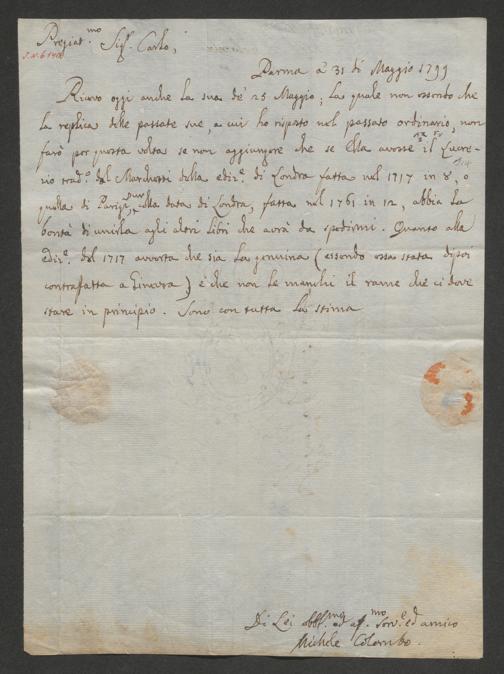 Pregiat.mo Sig.r Carlo,
Parma a' 31 di Maggio 1799
Ricevo oggi anche la sua de' 25 Maggio; la quale non essendo che
la replica delle passate sue, a cui ho risposto nel passato ordinario, non
farò per questa volta se non aggiungere che se Ella avesse il Lucre-
zio trad.o dal Marchetti della ediz.e di Londra fatta nel 1717 in 8, o
quella di Parigi colla data di Londra, fatta nel 1761 in 12, abbia la
bontà di unirla agli altri libri che avrà da spedirmi. Quanto alla
ediz.e del 1717 avverta che sia la genuina (essendo essa stata dipoi
contrafatta a Ginevra) e che non le manchi il rame che ci deve
stare in principio. Sono con tutta la stima
Di Lei obbl.mo ed aff.mo Serv.e ed amico
Michele Colombo.